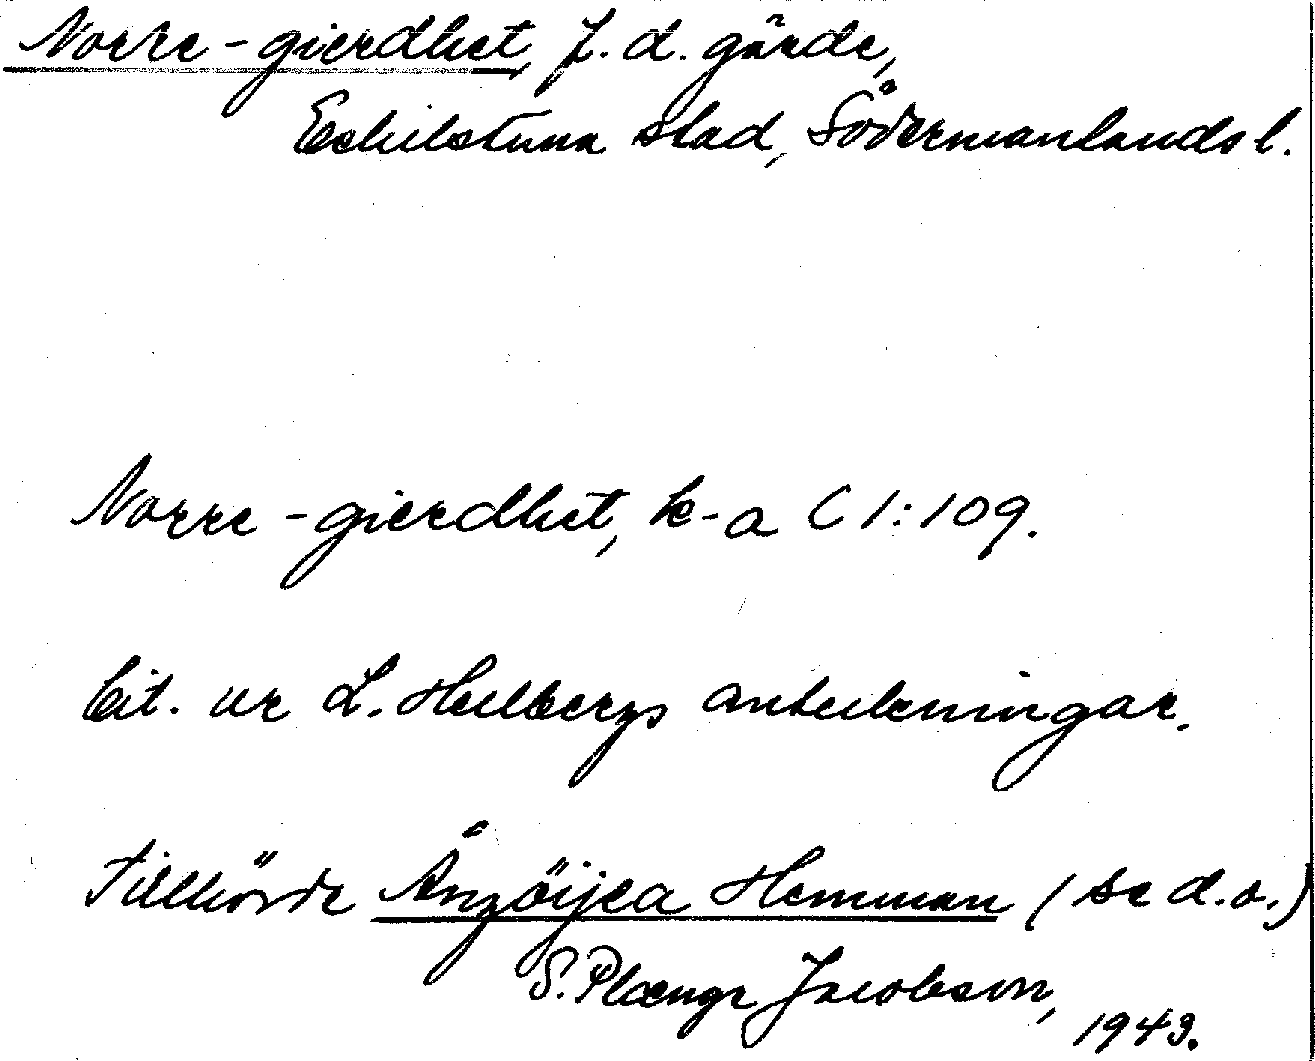 Norre-gierdhet, f.d. gärde,
Eskilstuna stad, Södermanlands l.
Norre-gierdhet, k-a C I:109.
Cit. ur L. Hellbergs anteckningar.
Tillhörde Ångöijea Hemman (se d.o.)
S. Plænge Jacobson,
1943.